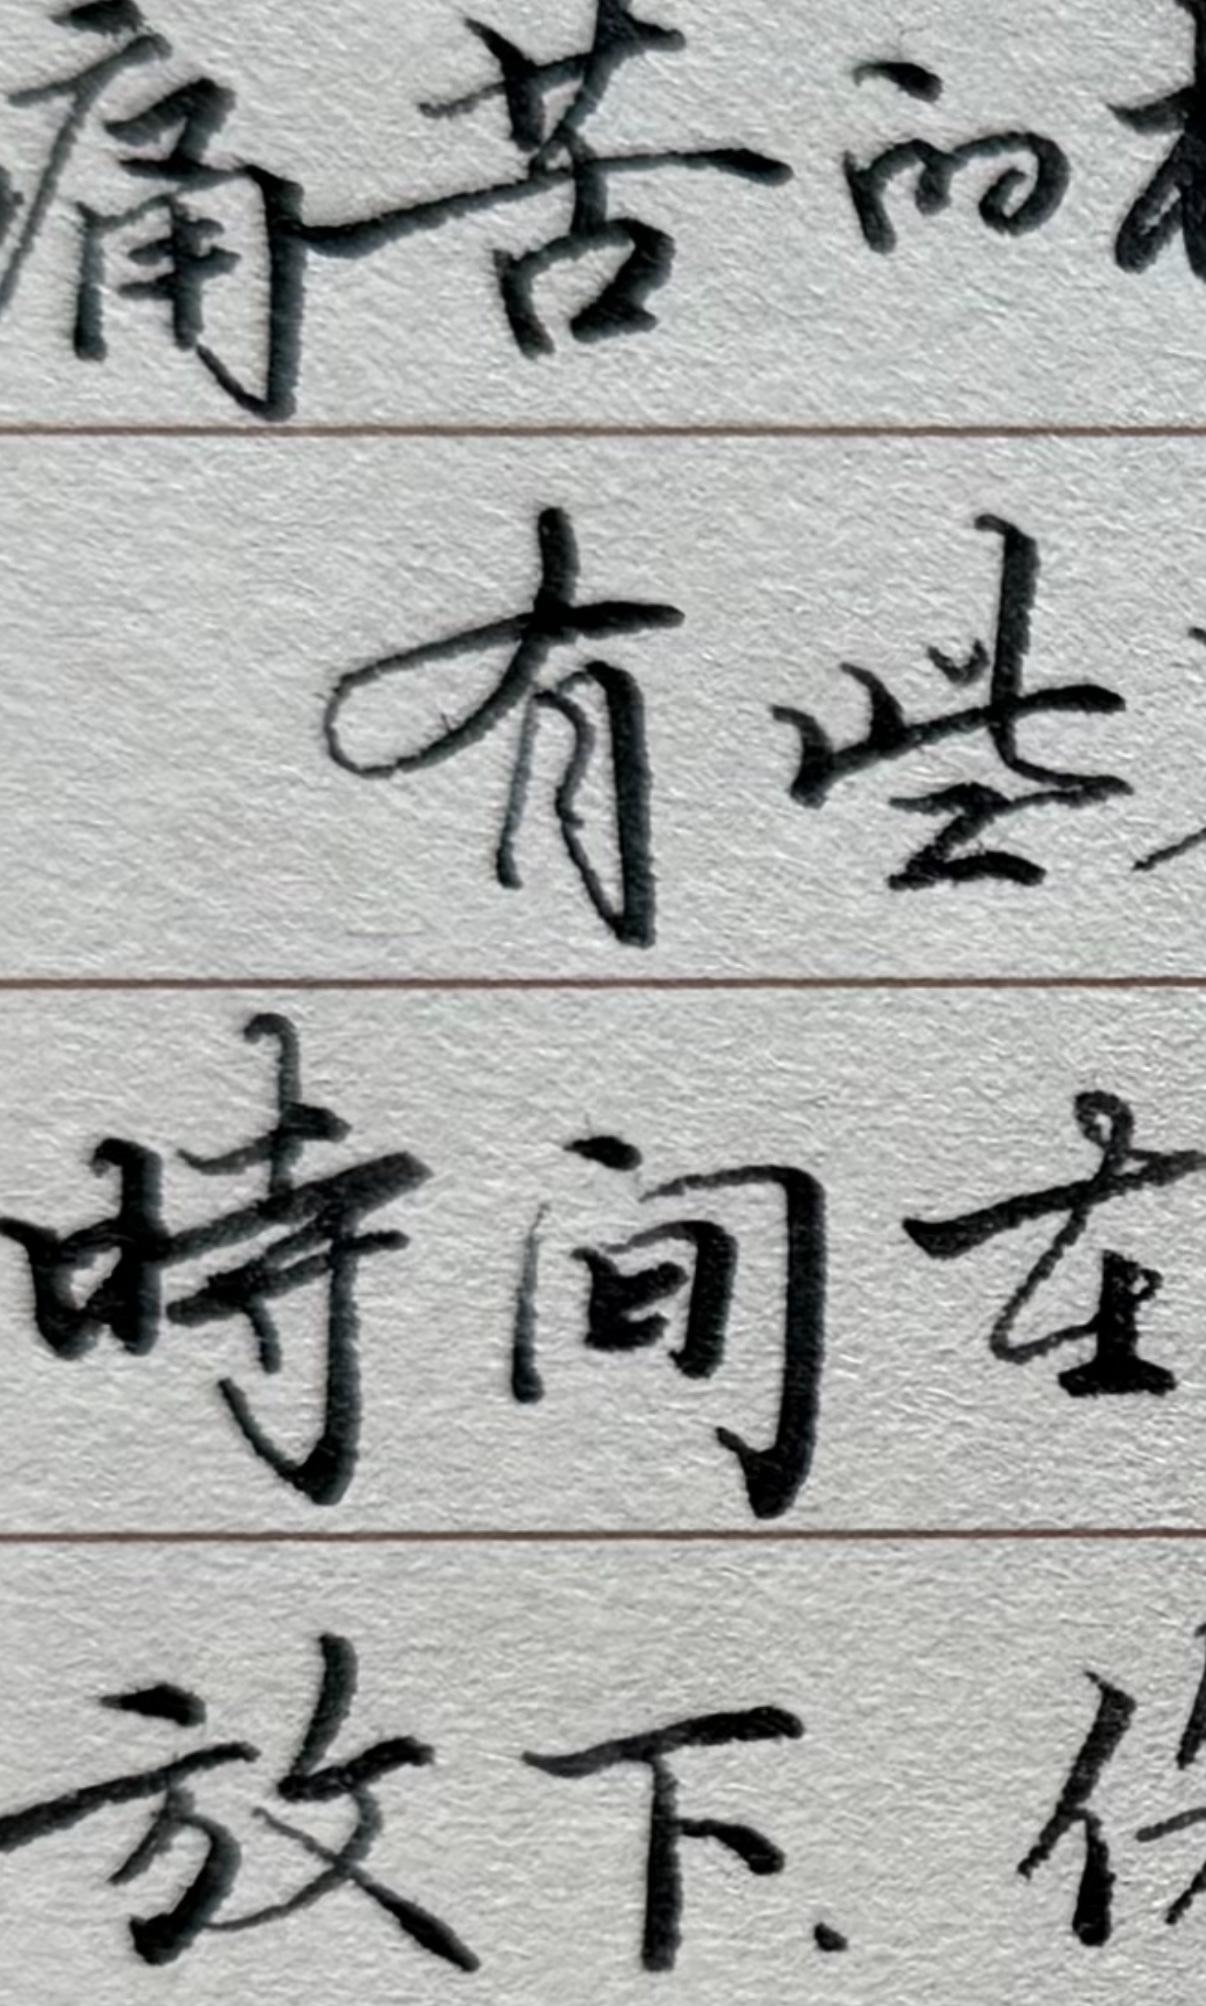 痛苦的
有些
時间在
放下.